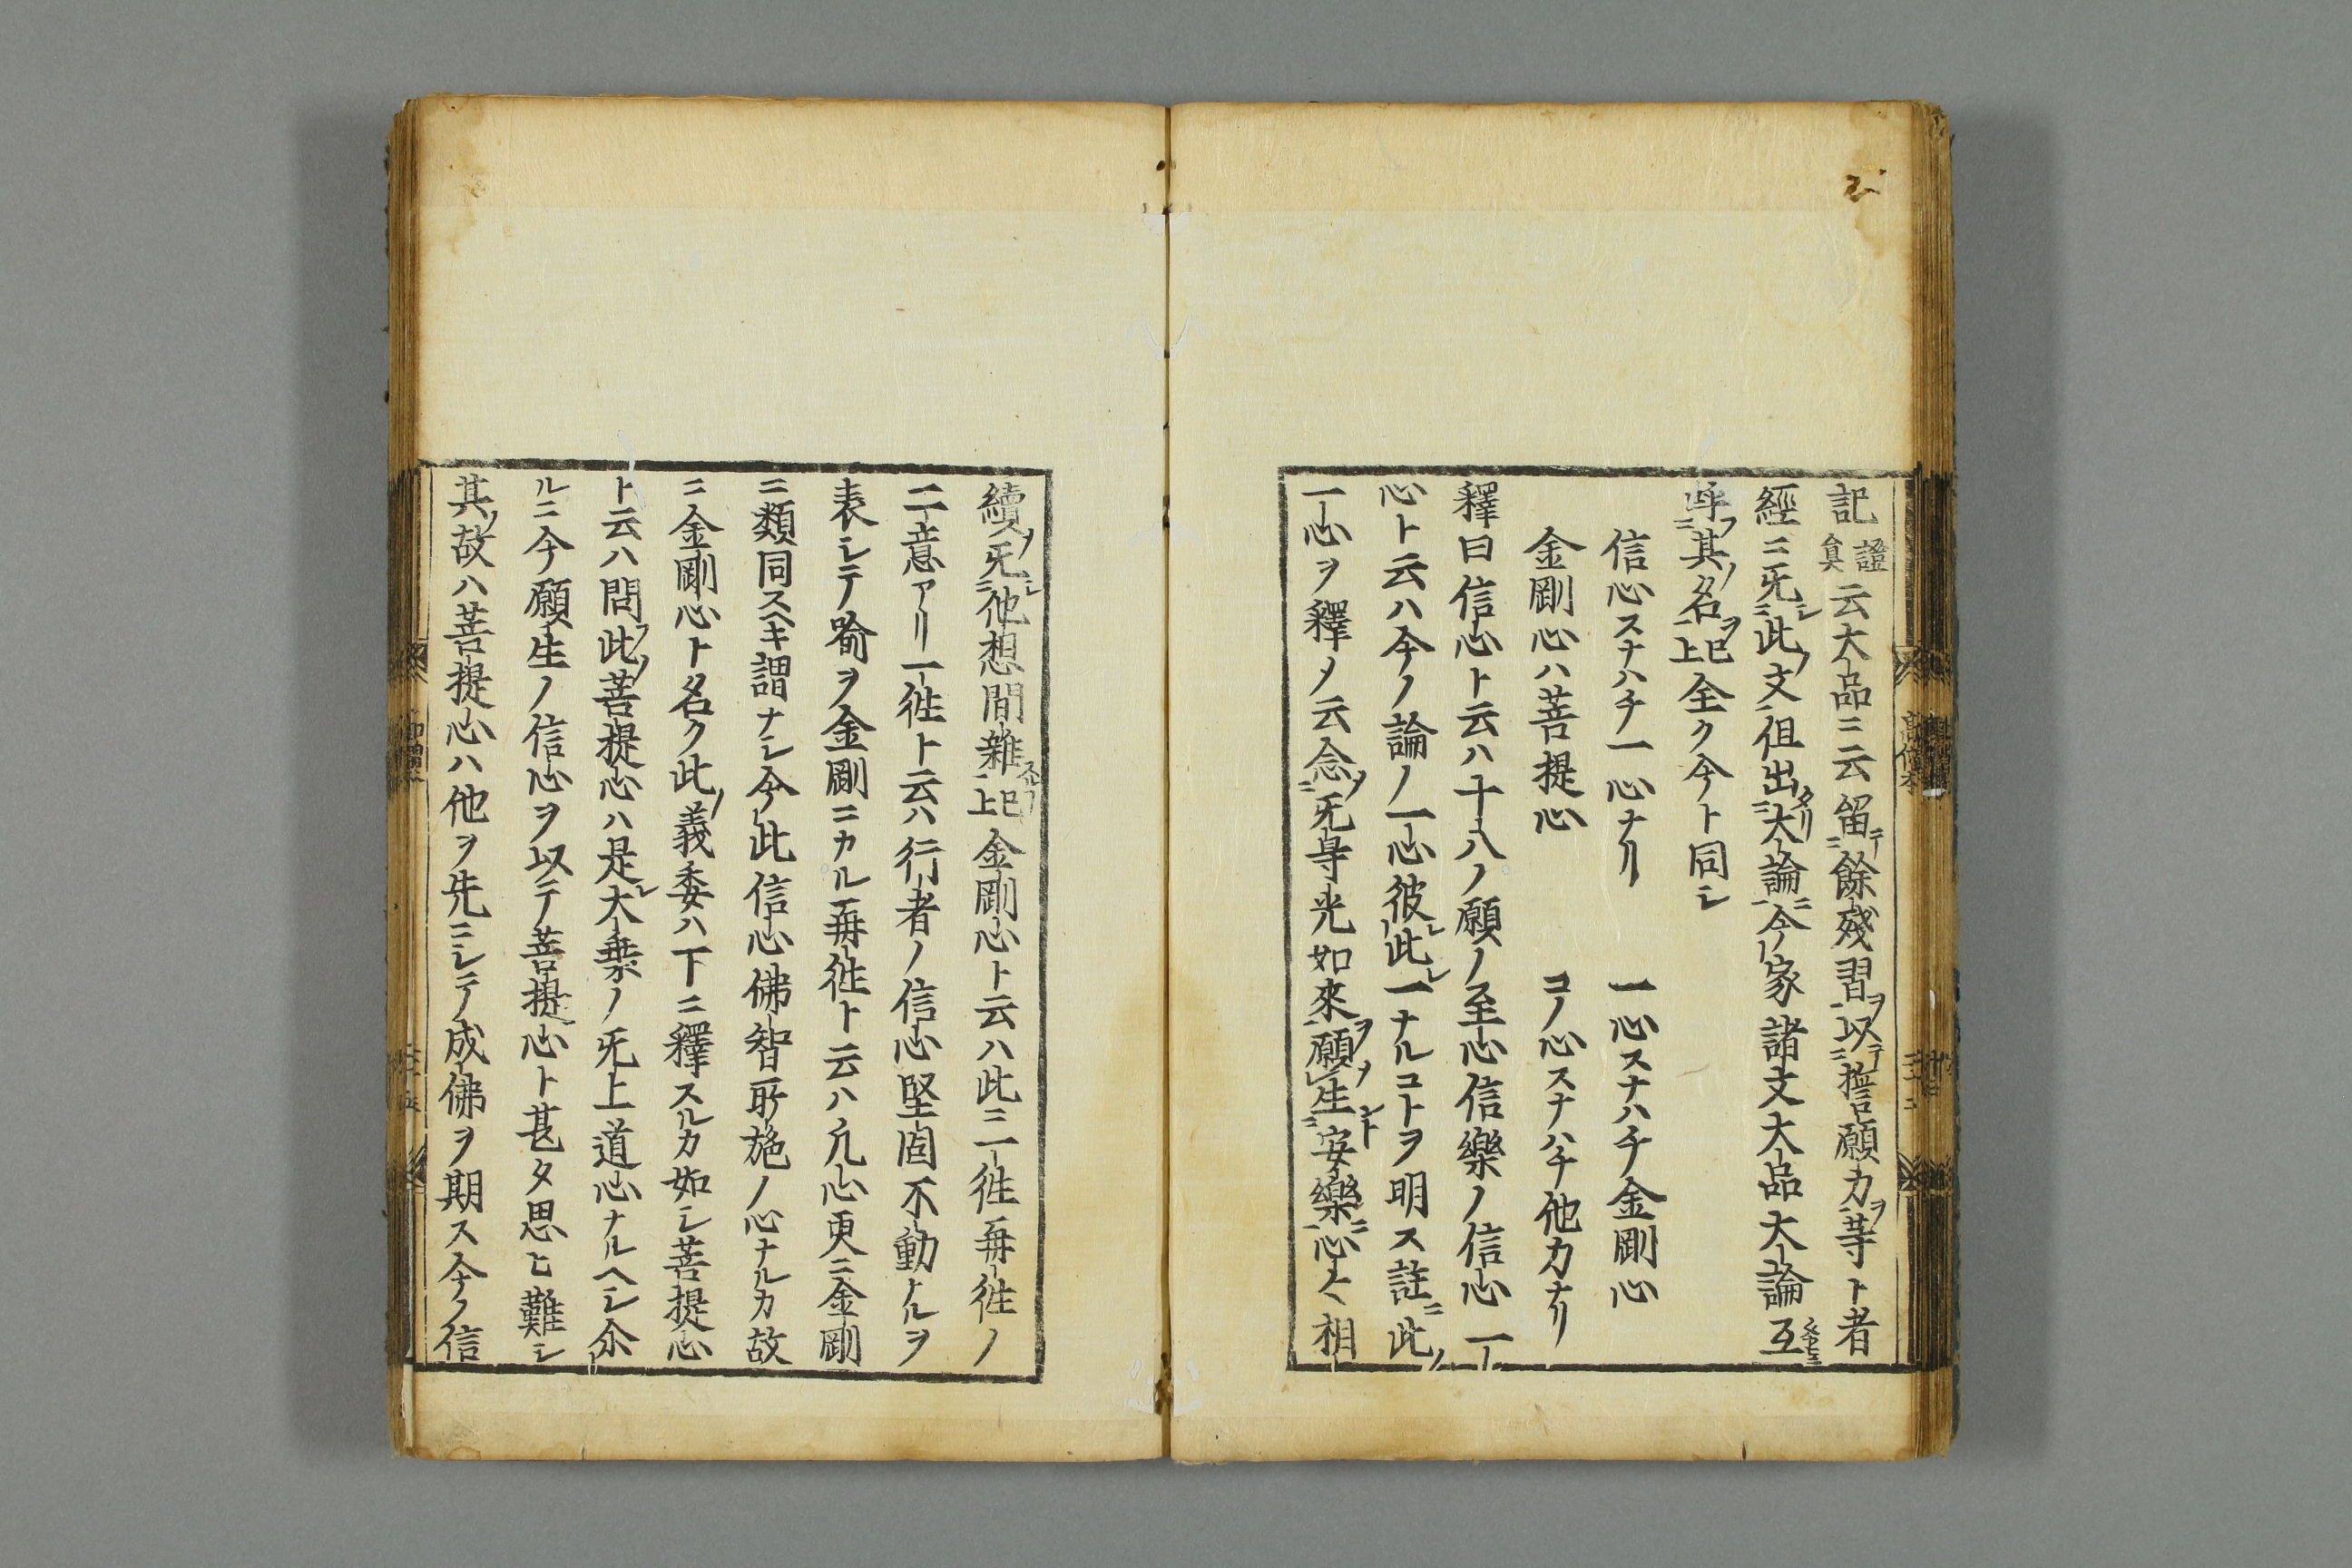 記 證眞 云大品ニ云留テ餘殘習ヲ以テ誓願力ヲ等ト者
經ニ旡シ此ノ文但出タリ大論ニ今ノ家諸文大品大論互ニ
呼フ其ノ名ヲ已上全ク今ト同シ
信心スナハチ一心ナリ 一心スナハチ金剛心
金剛心ハ菩提心 コノ心スナハチ他力ナリ
釋曰信心ト云ハ十八ノ願ノ至心信樂ノ信心一
心ト云ハ今ノ論ノ一心彼レ此レ一ナルコトヲ明ス註ニ此ノ
一心ヲ釋メ云念ノ旡㝵光如來ヲ願ノ生レト安樂ニ心〻相
續ノ旡シ他想間雜已上金剛心ト云ハ此ニ一徃再徃ノ
二意アリ一徃ト云ハ行者ノ信心堅固不動ナルヲ
表シテ喩ヲ金剛ニカル再徃ト云ハ凡心更ニ金剛
ニ類同スヘキ謂ナシ今此信心佛智所施ノ心ナルカ故
ニ金剛心ト名ク此ノ義委ハ下ニ釋スルカ如シ菩提心
ト云ハ問フ此ノ菩提心ハ是レ大乘ノ旡上道心ナルヘシ尒
ルニ今願生ノ信心ヲ以テ菩提心ト甚タ思ヒ難シ
其ノ故ハ菩提心ハ他ヲ先ニシテ成佛ヲ期ス今ノ信